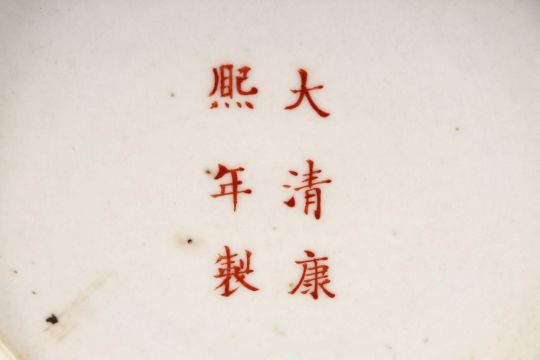 大清康
熙年製